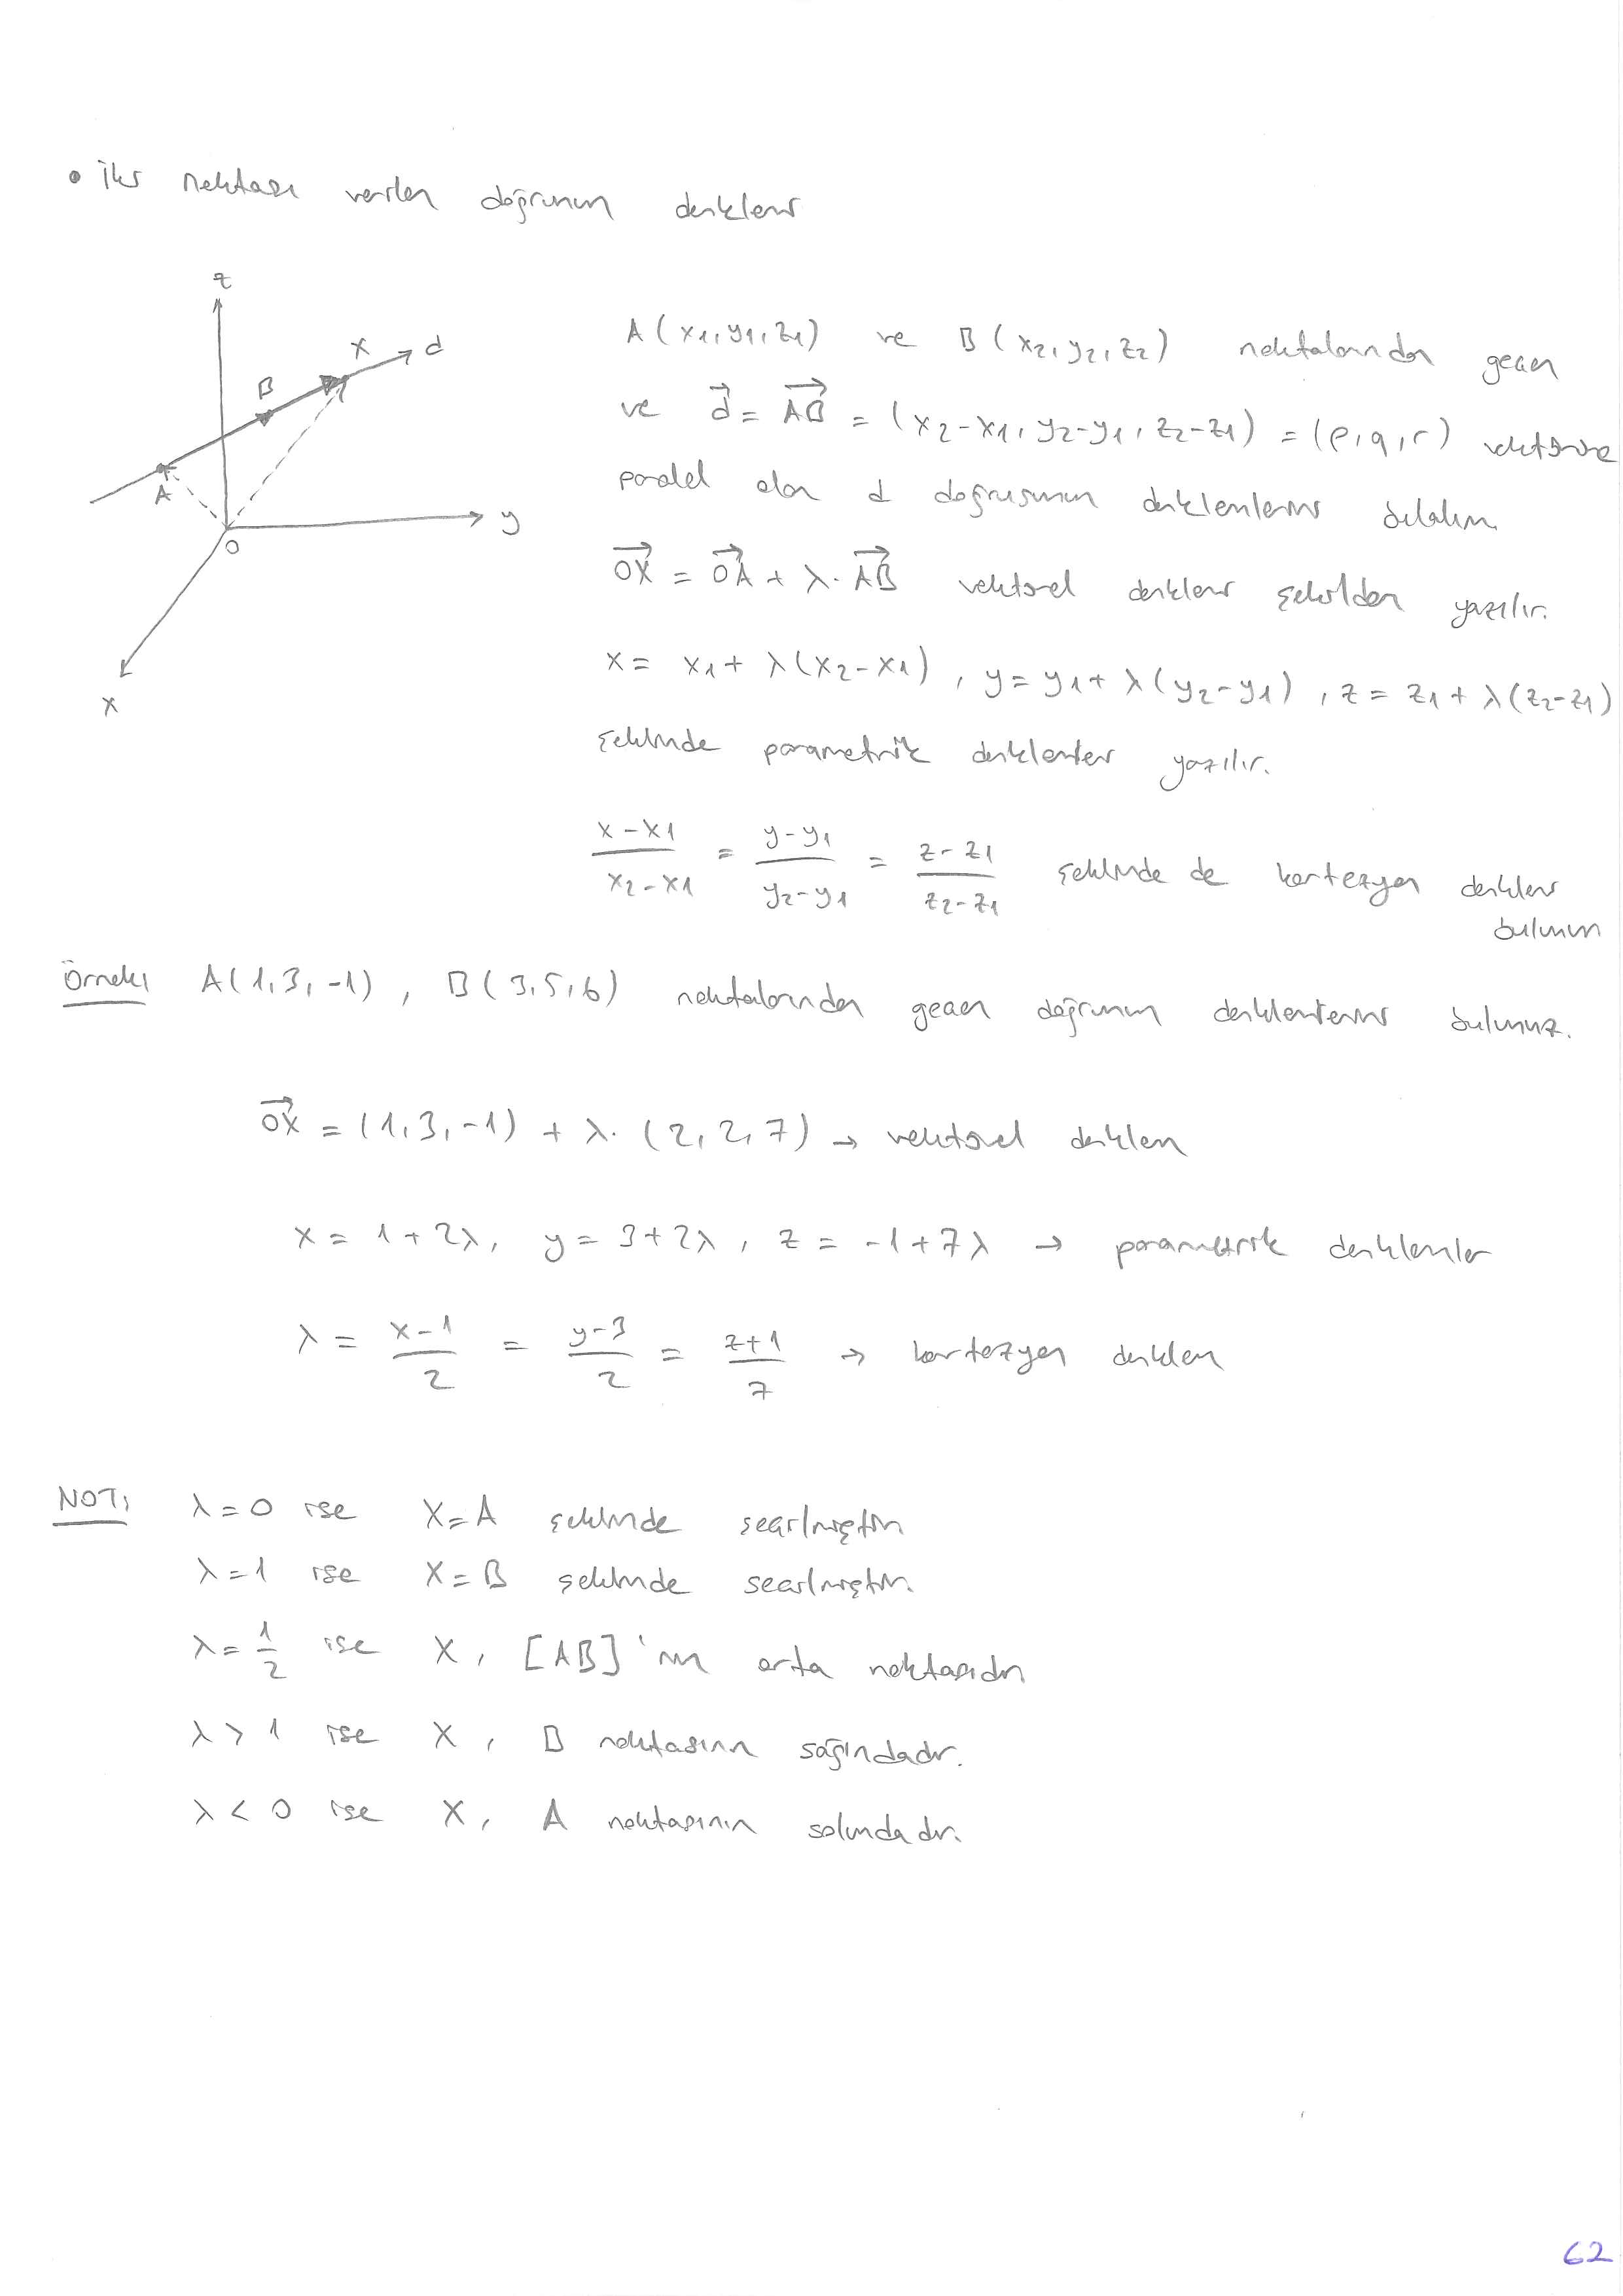 • İki noktası verilen doğrunun denklemi
z
X d
B
A
y
O
x
A(x1,y1,z1) ve B(x2,y2,z2) noktalarından geçen
ve d⃗ = AB⃗ = (x2-x1, y2-y1, z2-z1) = (p,q,r) vektörüne
paralel olan d doğrusunun denklemlerini bulalım.
OX⃗ = OA⃗ + λ.AB⃗ vektörel denklemi şekilden yazılır.
x = x1 + λ(x2-x1), y = y1 + λ(y2-y1), z = z1 + λ(z2-z1)
şeklinde parametrik denklemler yazılır.
(x-x1)/(x2-x1) = (y-y1)/(y2-y1) = (z-z1)/(z2-z1) şeklinde de kartezyen denklemi
bulunur
Örnek: A(1,3,-1), B(3,5,6) noktalarından geçen doğrunun denklemlerini bulunuz.
OX⃗ = (1,3,-1) + λ.(2,2,7) → vektörel denklem
x = 1+2λ, y = 3+2λ, z = -1+7λ → parametrik denklemler
λ = (x-1)/2 = (y-3)/2 = (z+1)/7 → kartezyen denklem
NOT: λ=0 ise X=A şeklinde seçilmiştir
λ=1 ise X=B şeklinde seçilmiştir.
λ=1/2 ise X, [AB]'nın orta noktasıdır
λ>1 ise X, B noktasının sağındadır.
λ<0 ise X, A noktasının solundadır.
62